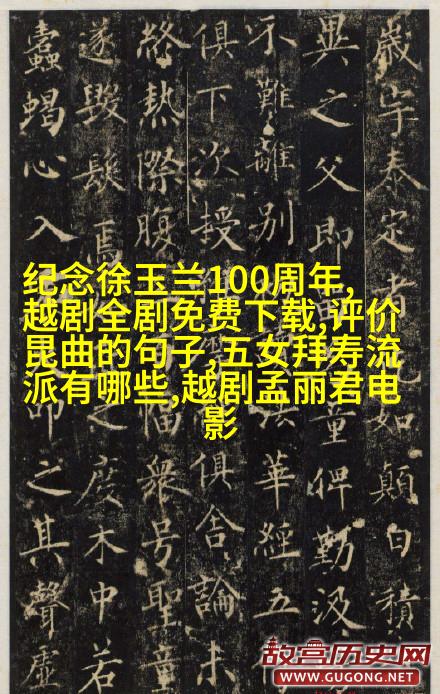 纪念徐玉兰100周年,
越剧全剧免费下载,评价
昆曲的句子,五女拜寿流
派有哪些,越剧孟丽君电
影
歲字泰定者如顛白積
異之父即童俾勤汲
不難離別法華經五
俱下次授俱舍論未
終熱際腹衆号聖童
遂毀髮焉之度木中若
蠹蝎心入之其聲虛
故宫历史网
WWW.GUGONG.NET